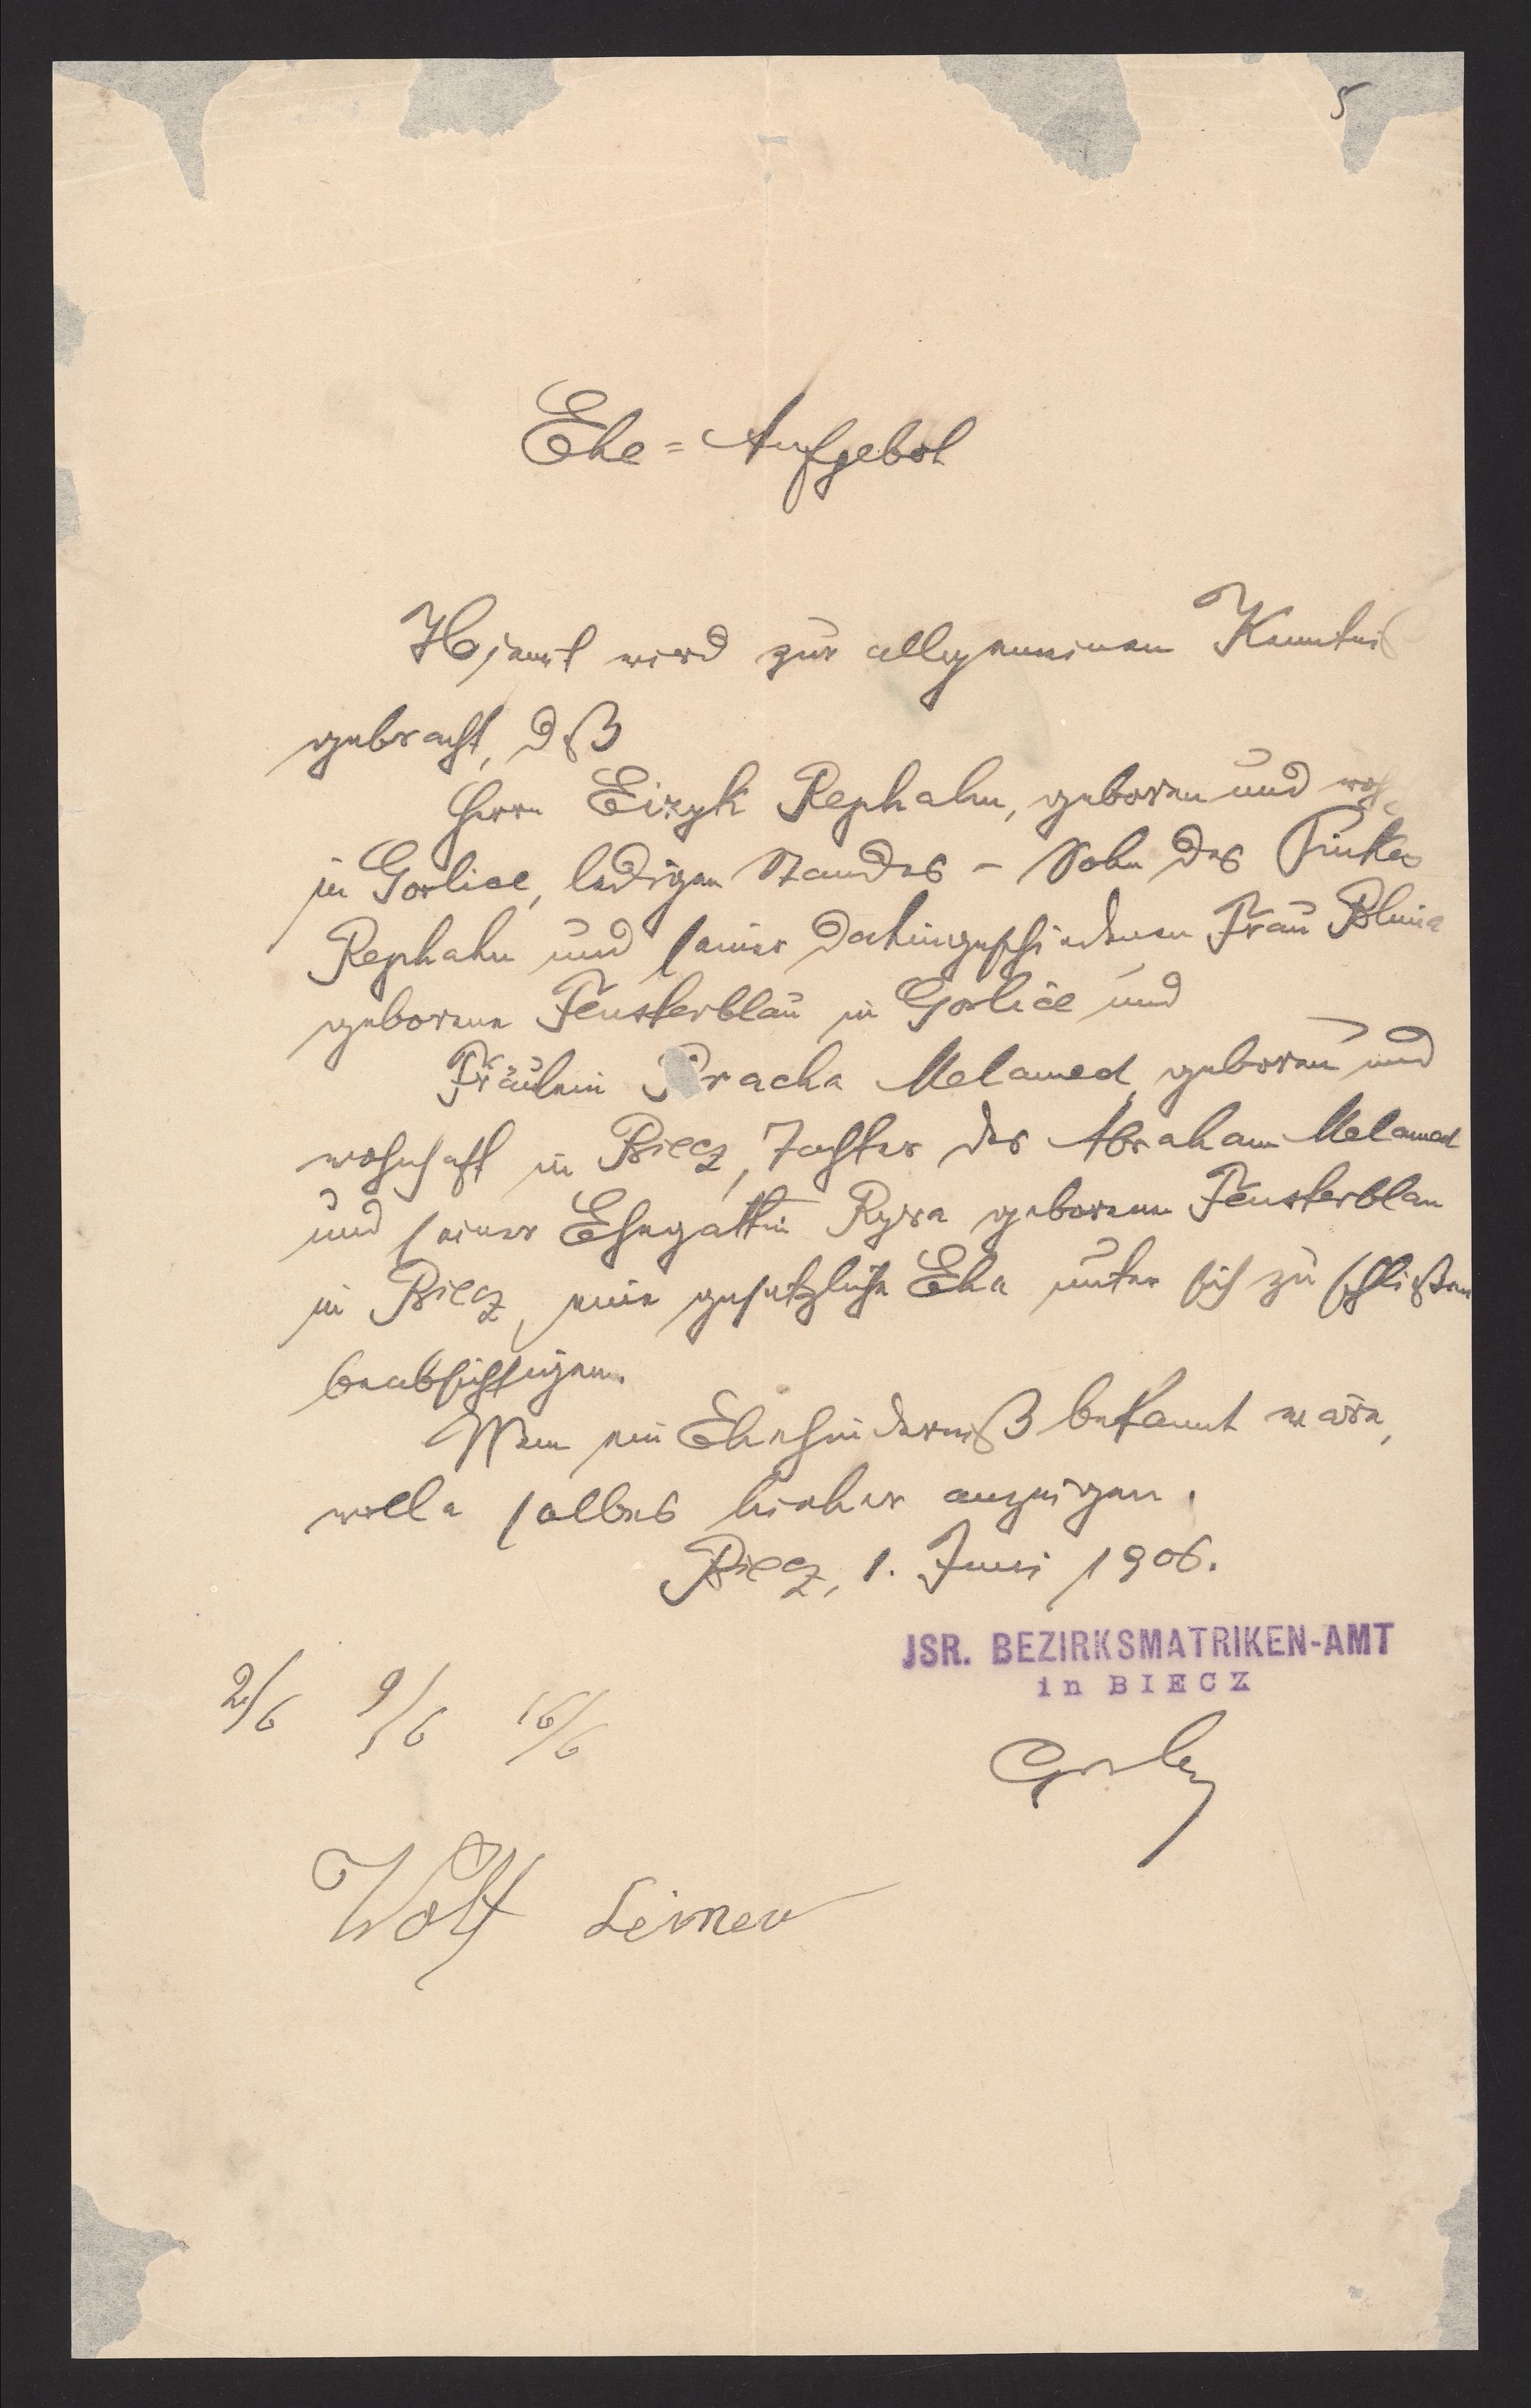 5
Ehe=Aufgebot
Hiemit wird zur allgemeinen Kenntnis
gebracht, dß
Herr Eizyk Rephahn, geboren und woh
in Gorlice, ledigen Standes – Sohn des Pinkas
Rephahn und seiner dahingeschiedenen Frau Blima
geborene Fensterblau in Gorlice und
Fräulein Bracha Melamed, geboren und
wohnhaft in Biecz, Tochter des Abraham Melamed
und seiner Ehegattin Ryra geborene Fensterblau
in Biecz, eine gesetzliche Ehe unter sich zu schließen
beabsichtigen.
Wem ein Ehehinderniß bekannt wäre,
wolle selbes hieher anzeigen.
Biecz, 1. Juni 1906.
JSR. BEZIRKSMATRIKEN-AMT
in BIECZ
2/6 9/6 16/6
Wolf